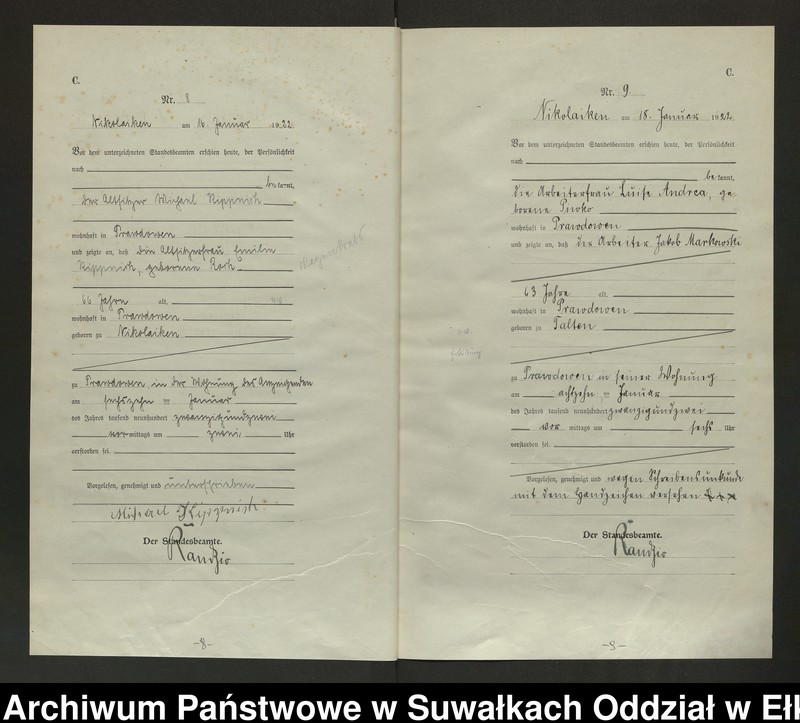 C.
Nr. 8
Nikolaiken am 16. Januar 1922
Vor dem unterzeichneten Standesbeamten erschien heute, der Persönlichkeit
nach
bekannt,
der Altsitzer Michael
wohnhaft in Prawdowen
und zeigte an, daß die Altsitzerfrau
geborene
66 Jahre alt,
wohnhaft in Prawdowen
geboren zu Nikolaiken
zu Prawdowen, in der Wohnung des Anzeigenden
am sechszehn ten Januar
des Jahres tausend neunhundert zwanzigundzwei
vor mittags um zwei Uhr
verstorben sei.
Vorgelesen, genehmigt und unterschrieben
Michael
Der Standesbeamte.
Randzio
-8-
C.
Nr. 9
Nikolaiken am 18. Januar 1922
Vor dem unterzeichneten Standesbeamten erschien heute, der Persönlichkeit
nach
bekannt,
die Arbeiterfrau Luise Andrea, ge
borene
wohnhaft in Prawdowen
und zeigte an, daß der Arbeiter Jakob Markowski
63 Jahre alt,
wohnhaft in Prawdowen
geboren zu Talten
zu Prawdowen in seiner Wohnung
am achtzehn ten Januar
des Jahres tausend neunhundert zwanzigundzwei
vor mittags um sechs Uhr
verstorben sei.
Vorgelesen, genehmigt und wegen Schreibensunkunde
mit dem Handzeichen versehen +++
Der Standesbeamte.
Randzio
-9-
Archiwum Państwowe w Suwałkach Oddział w Ełk